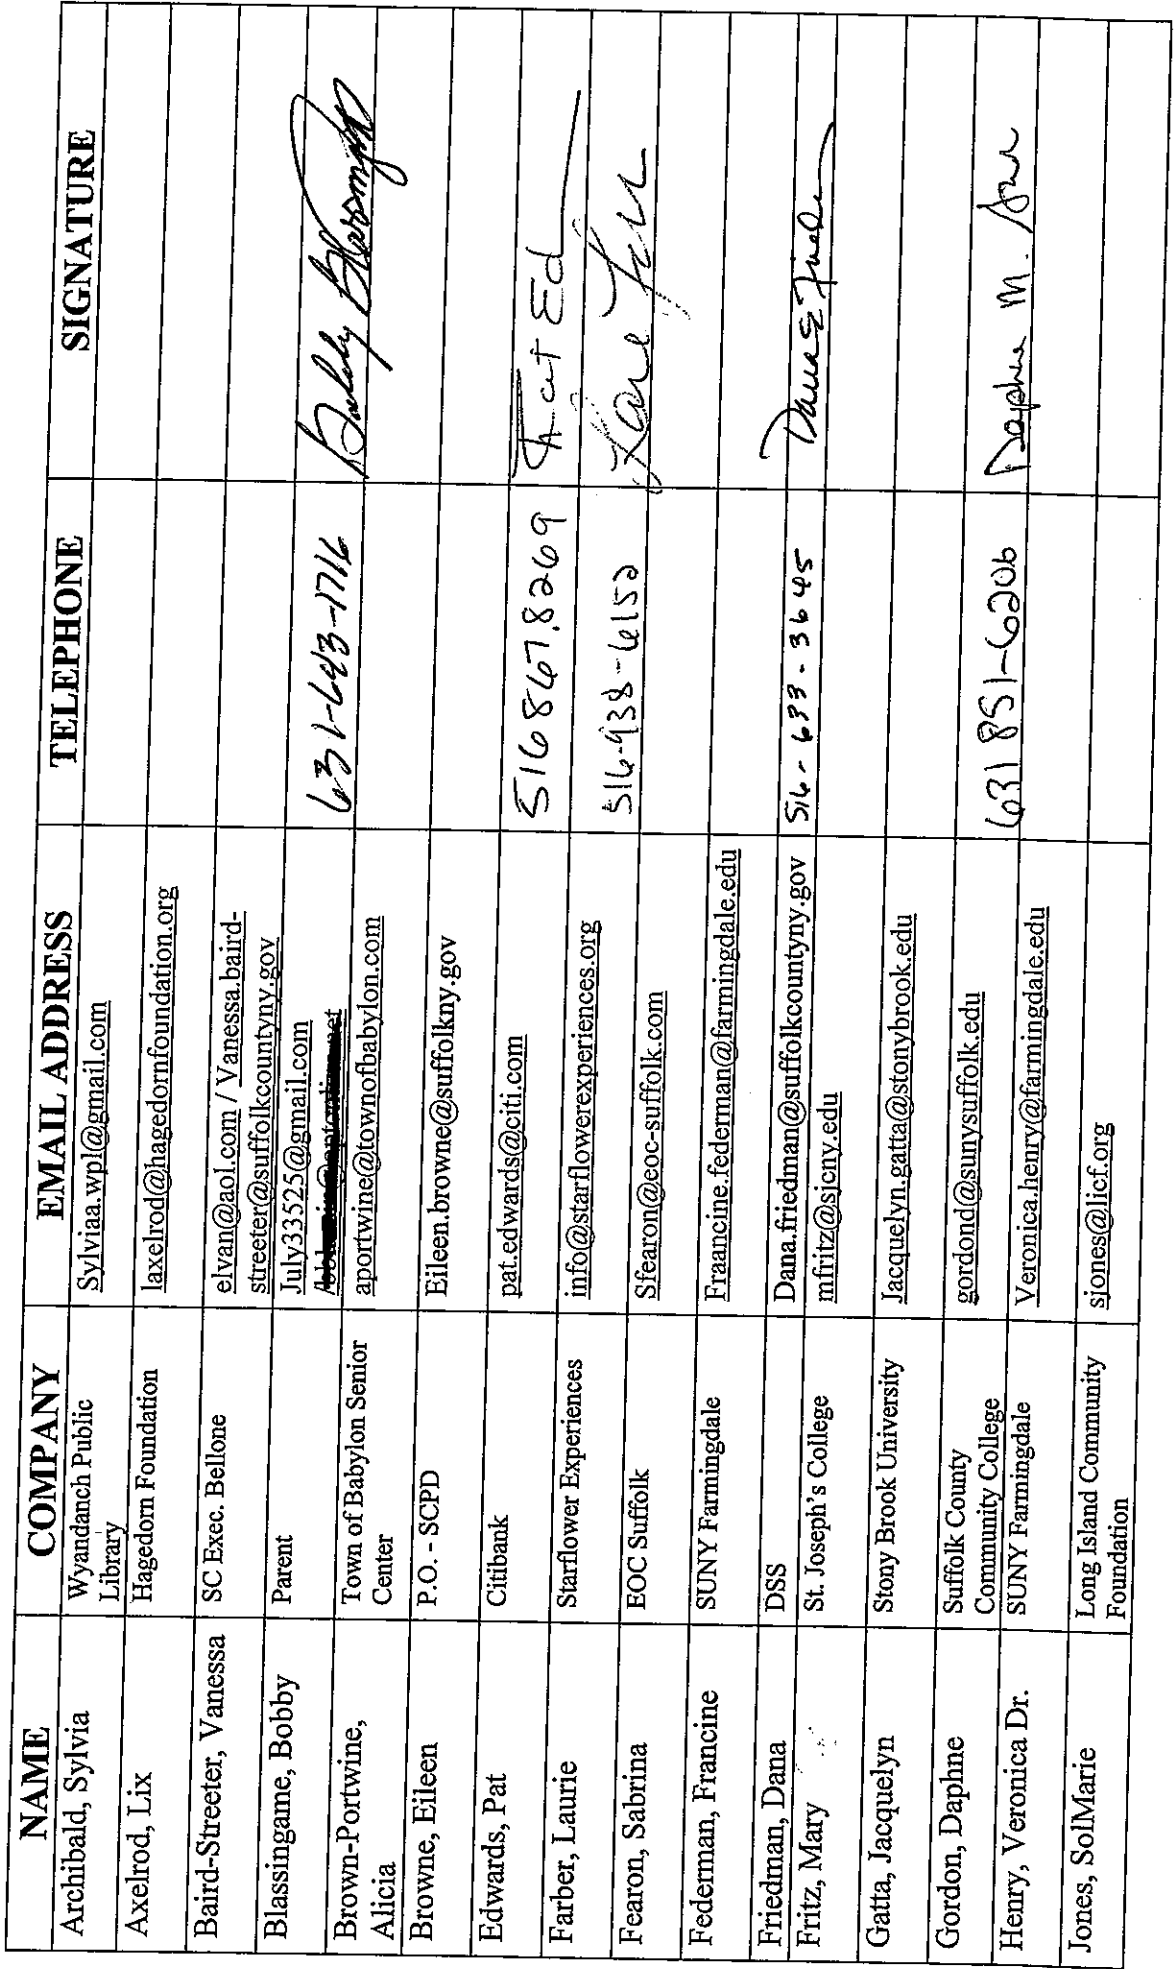 NAME COMPANY EMAIL ADDRESS TELEPHONE SIGNATURE
Archibald, Sylvia Wyandanch Public Sylviaa.wpl@gmail.com
Library
Axelrod, Lix Hagedorn Foundation laxelrod@hagedornfoundation.org
Baird-Streeter, Vanessa SC Exec. Bellone elvan@aol.com / Vanessa.baird-
streeter@suffolkcountyny.gov
Blassingame, Bobby Parent July33525@gmail.com 631-643-1716 Bobby Blassingame
Brown-Portwine, Town of Babylon Senior aportwine@townofbabylon.com
Alicia Center
Browne, Eileen P.O. - SCPD Eileen.browne@suffolkny.gov
Edwards, Pat Citibank pat.edwards@citi.com 516 867.8269 Pat Ed
Farber, Laurie Starflower Experiences info@starflowerexperiences.org 516-938-6152
Fearon, Sabrina EOC Suffolk Sfearon@eoc-suffolk.com
Federman, Francine SUNY Farmingdale Fraancine.federman@farmingdale.edu
Friedman, Dana DSS Dana.friedman@suffolkcountyny.gov 516-633-3645 Dana E
Fritz, Mary St. Joseph's College mfritz@sjcny.edu
Gatta, Jacquelyn Stony Brook University Jacquelyn.gatta@stonybrook.edu
Gordon, Daphne Suffolk County gordond@sunysuffolk.edu 631 851-6206 Daphne M.
Community College
Henry, Veronica Dr. SUNY Farmingdale Veronica.henry@farmingdale.edu
Jones, SolMarie Long Island Community sjones@licf.org
Foundation